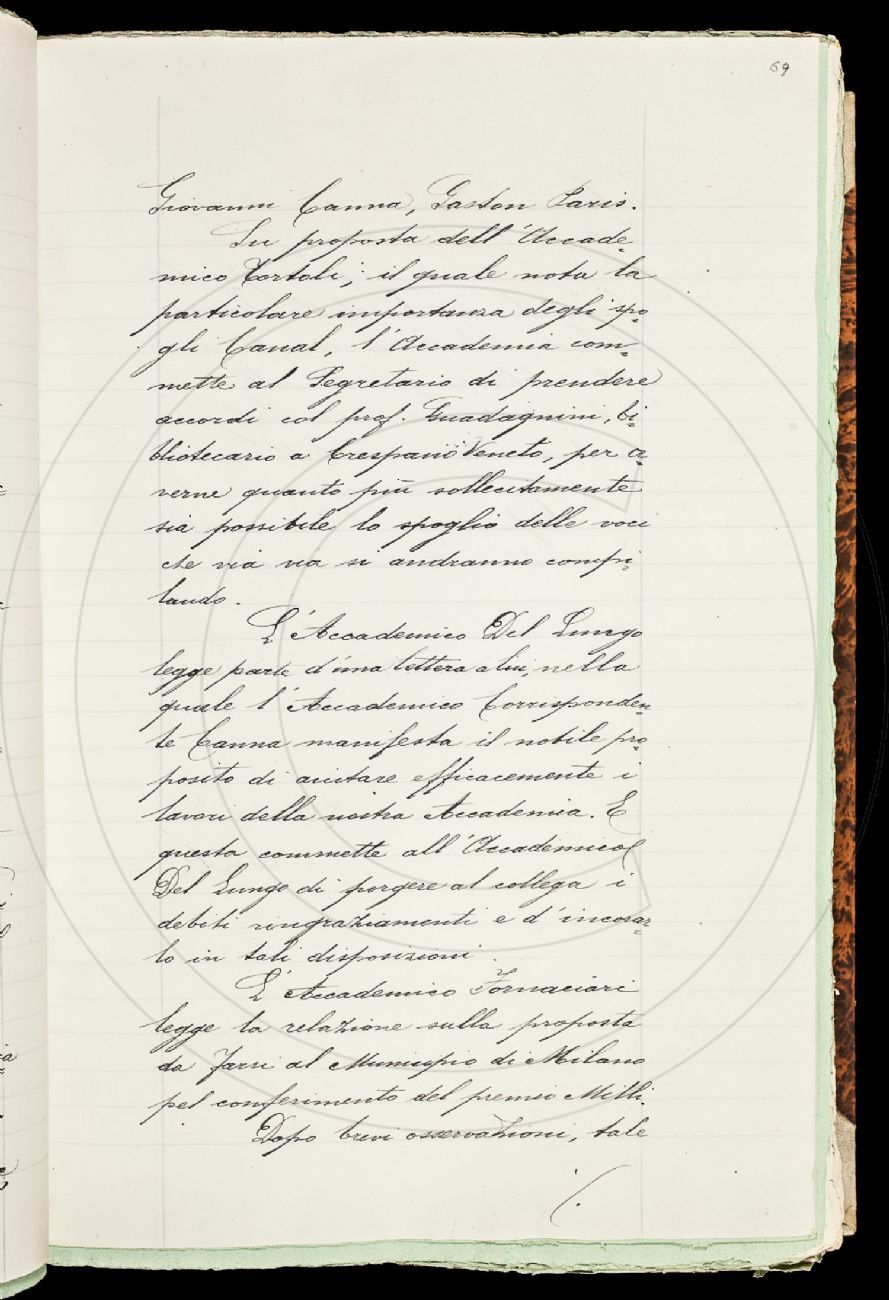 69
Giovanni Canna, Gaston Paris.
Su proposta dell'Accade=
mico Tortoli, il quale nota la
particolare importanza degli spo=
gli Canal, l'Accademia com=
mette al Segretario di prendere
accordi col prof. Guadagnini, bi=
bliotecario a Crespano Veneto, per a=
verne quanto più sollecitamente
sia possibile lo spoglio delle voci
che via via si andranno compi=
lando.
L'Accademico Del Lungo
legge parte d'una lettera a lui, nella
quale l'Accademico Corrisponden=
te Canna manifesta il nobile pro=
posito di aiutare efficacemente i
lavori della nostra Accademia. E
questa commette all'Accademico
Del Lungo di porgere al collega i
debiti ringraziamenti e d'incorar=
lo in tali disposizioni.
L'Accademico Fornaciari
legge la relazione sulla proposta
da farsi al Municipio di Milano
pel conferimento del premio Milli.
Dopo brevi osservazioni, tale